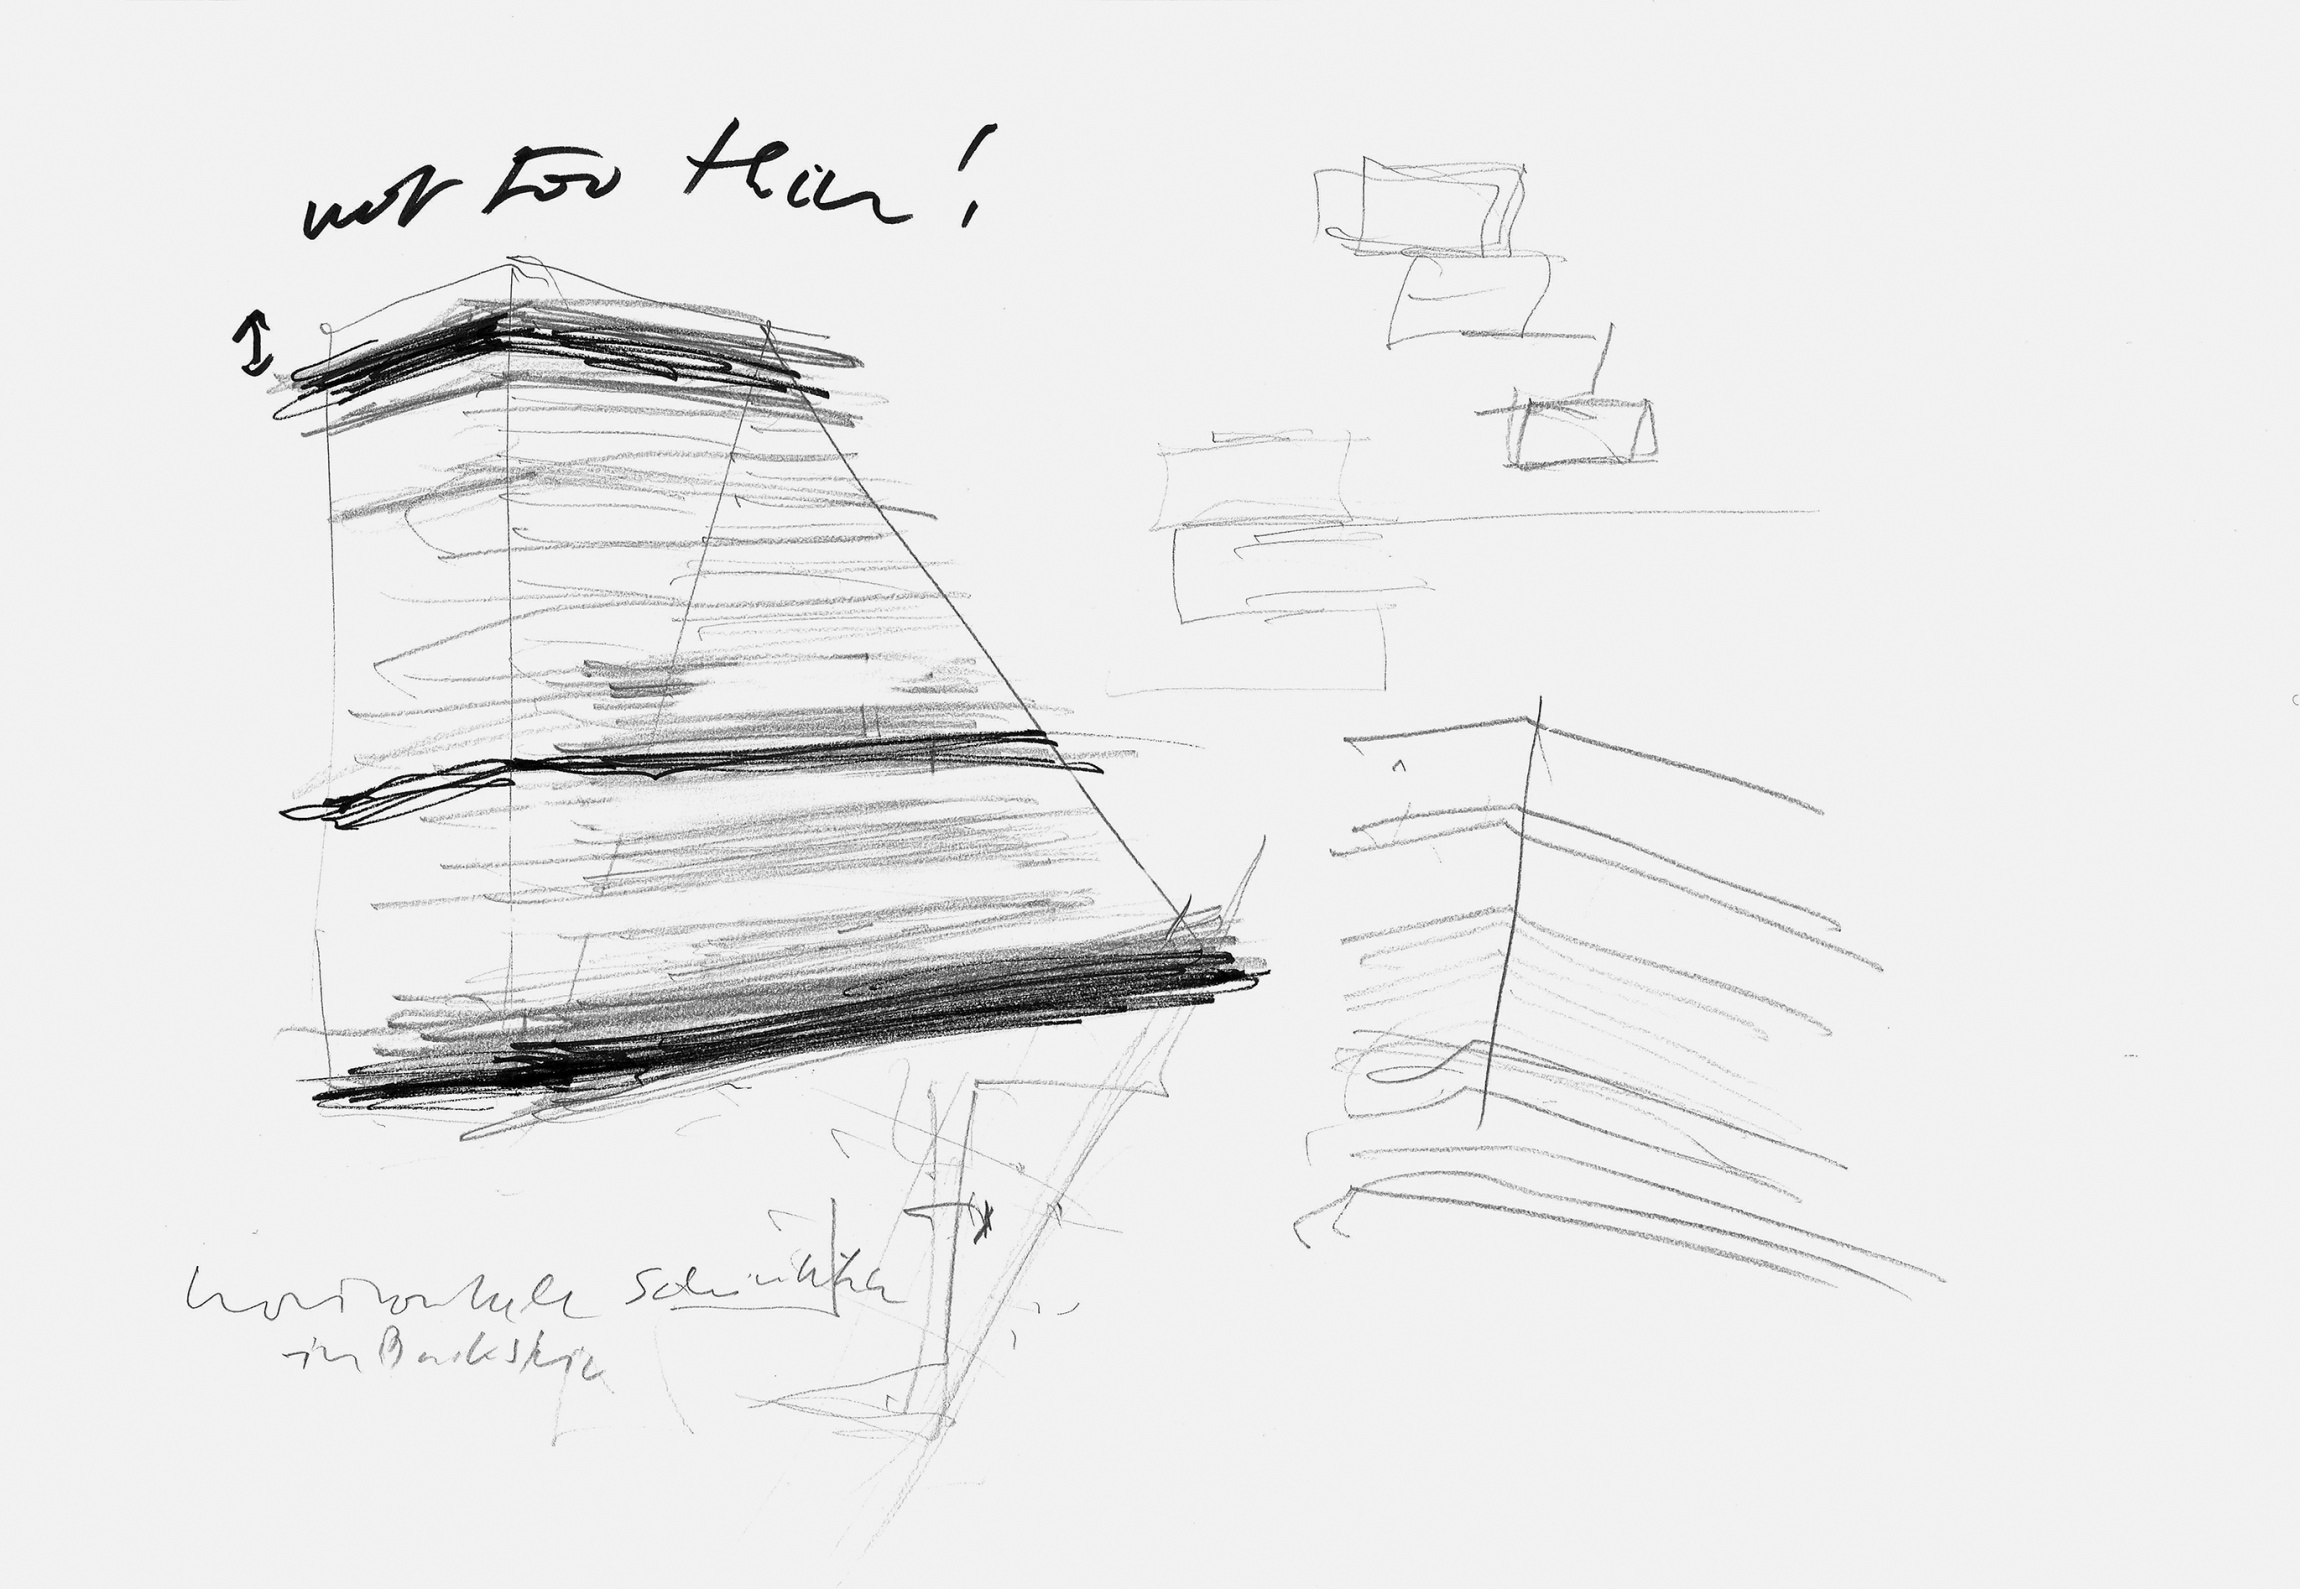 not too thin!
horizontale Schichten
in Backstein